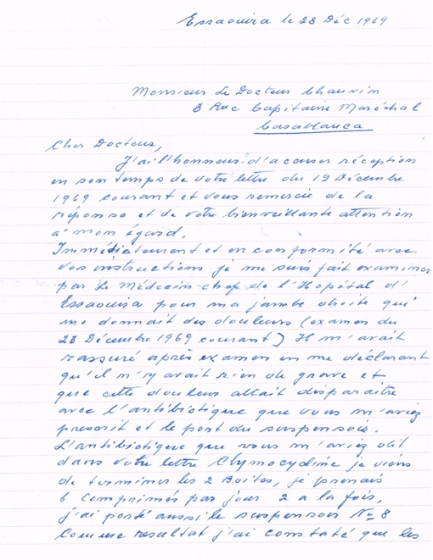 Essaouira le 28 Déc 1969
Monsieur Le Docteur Chauvin
3 Rue Capitaine Maréchal
Casablanca
Cher Docteur,
J'ai l'honneur d'accuser réception
en son temps de votre lettre du 19 Décembre
1969 courant et vous remercie de la
réponse et de votre bienveillante attention
à mon égard.
Immédiatement et en conformité avec
vos instructions je me suis fait examiner
par Le Médecin-chef de l'Hôpital d'
Essaouira pour ma jambe droite qui
me donnait des douleurs (examen du
23 Décembre 1969 courant) Il m'avait
rassuré après examen en me déclarant
qu'il n'y avait rien de grave et
que cette douleur allait disparaître
avec l'antibiotique que vous m'aviez
prescrit et le port du suspensoir.
L'antibiotique que vous m'aviez dit
dans votre lettre Chymocycline je viens
de terminer les 2 Boites, je prenais
6 comprimés par jour 2 à la fois,
j'ai porté aussi le suspensoir No 8
comme resultat j'ai constaté que les